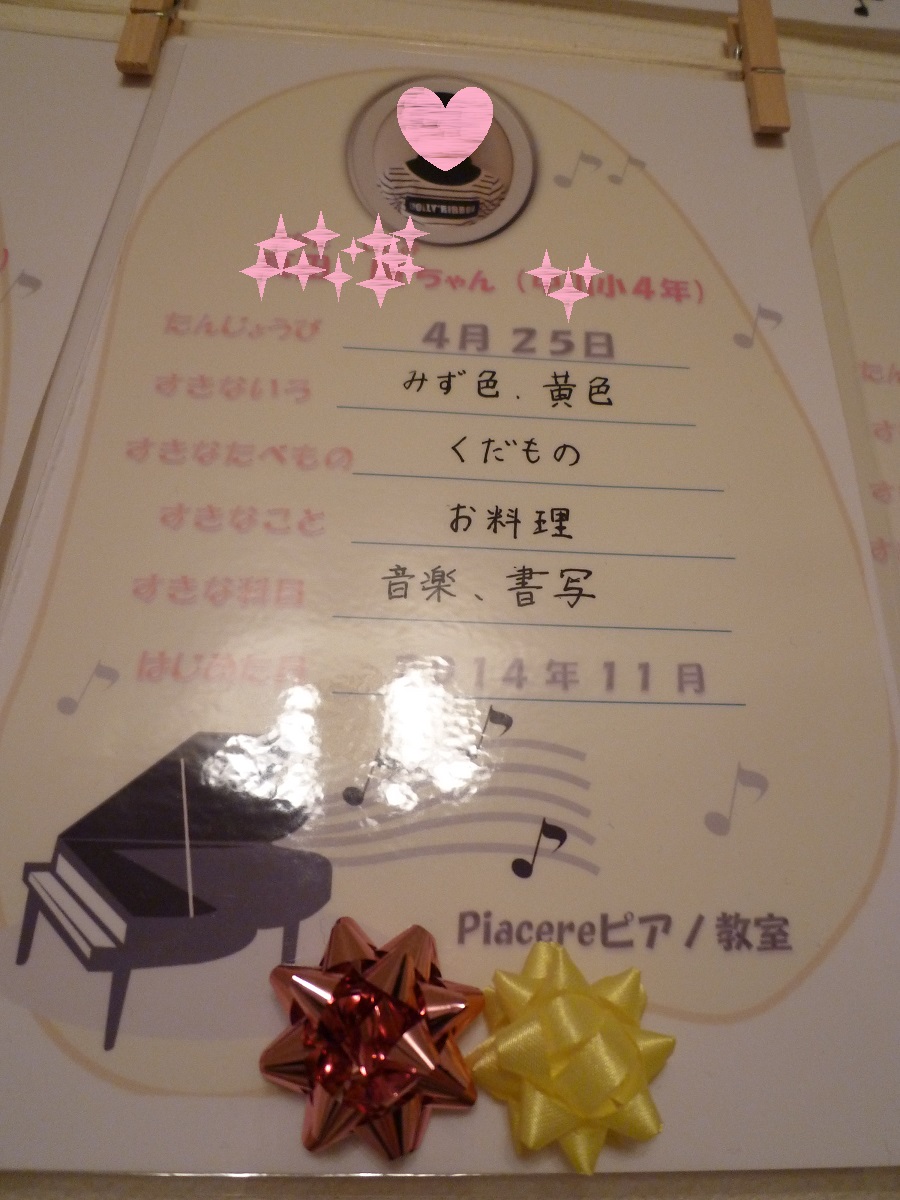 ちゃん（小4年）
たんじょうび 4月25日
すきないろ みず色、黄色
すきなたべもの くだもの
すきなこと お料理
すきな科目 音楽、書写
はじめた月 2014年11月
Piacereピアノ教室